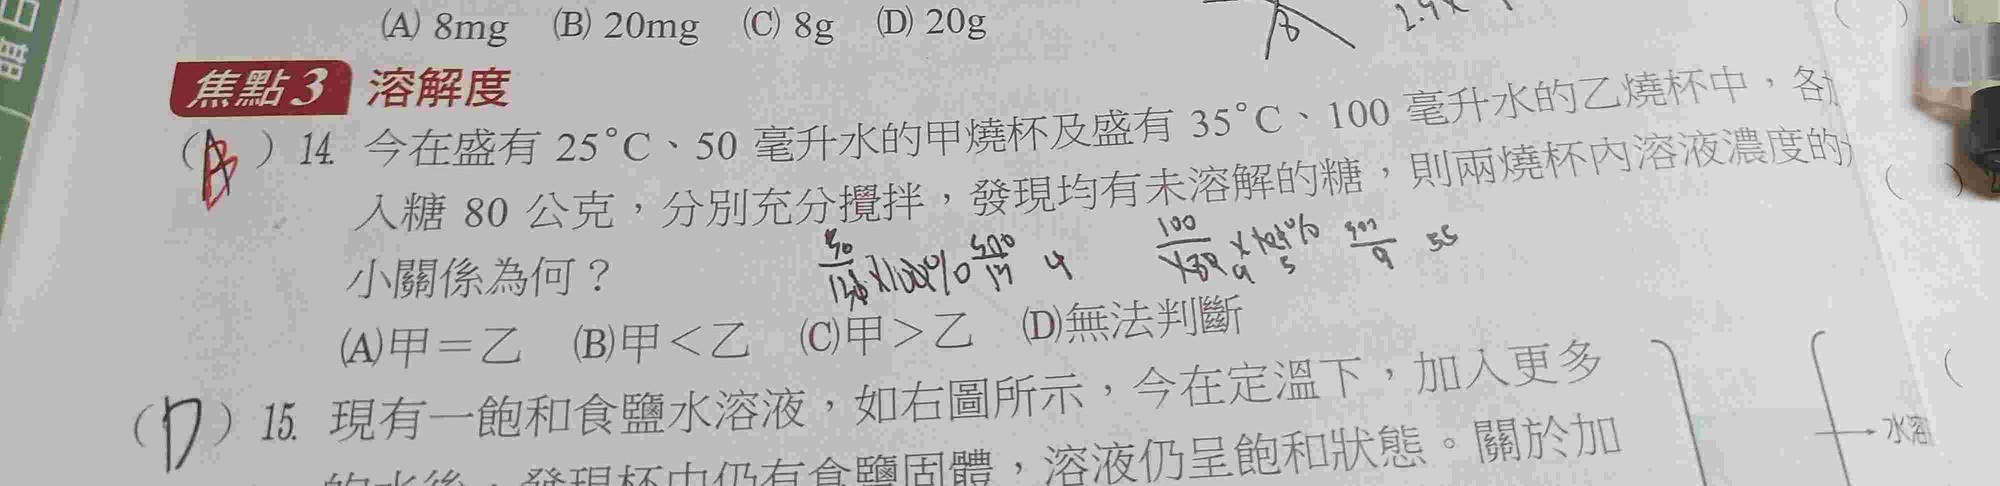 (A) 8mg (B) 20mg (C) 8g (D) 20g
焦點3 溶解度
( B ) 14. 今在盛有 25°C、50 毫升水的甲燒杯及盛有 35°C、100 毫升水的乙燒杯中,各
入糖 80 公克,分別充分攪拌,發現均有未溶解的糖,則兩燒杯內溶液濃度的
小關係為何?
(A)甲=乙 (B)甲<乙 (C)甲>乙 (D)無法判斷
( D ) 15. 現有一飽和食鹽水溶液,如右圖所示,今在定溫下,加入更多
的水後,發現杯中仍有食鹽固體,溶液仍呈飽和狀態。關於加
水溶